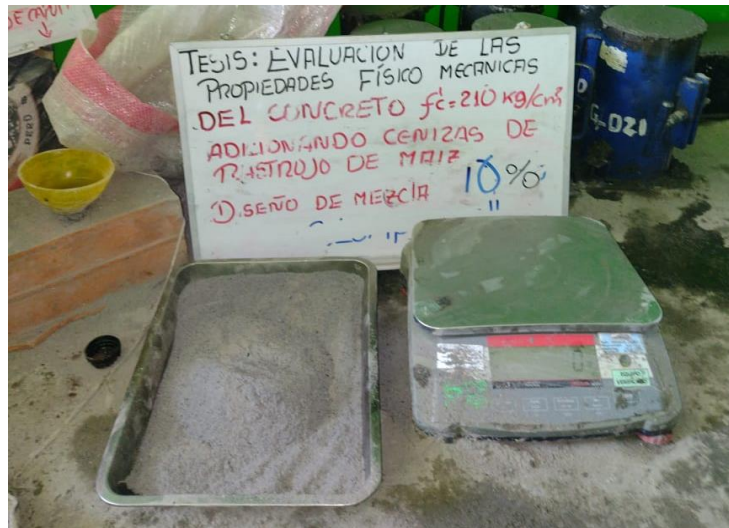 DE CAÑA
PERÚ
TESIS: EVALUACION DE LAS
PROPIEDADES FÍSICO MECANICAS
DEL CONCRETO f'c=210 Kg/cm²
ADICIONANDO CENIZAS DE
RASTROJO DE MAIZ
DISEÑO DE MEZCLA 10%
G-021
0